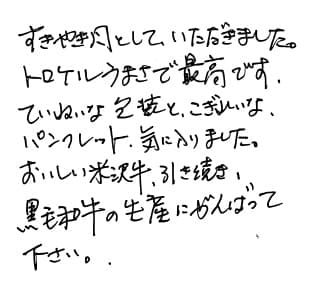 すきやき用として、いただきました。
トロケルうまさで最高です、
ていねいな包装と、こぎれいな、
パンフレット、気に入りました。
おいしい米沢牛、引き続き、
黒毛和牛の生産にがんばって
下さい。